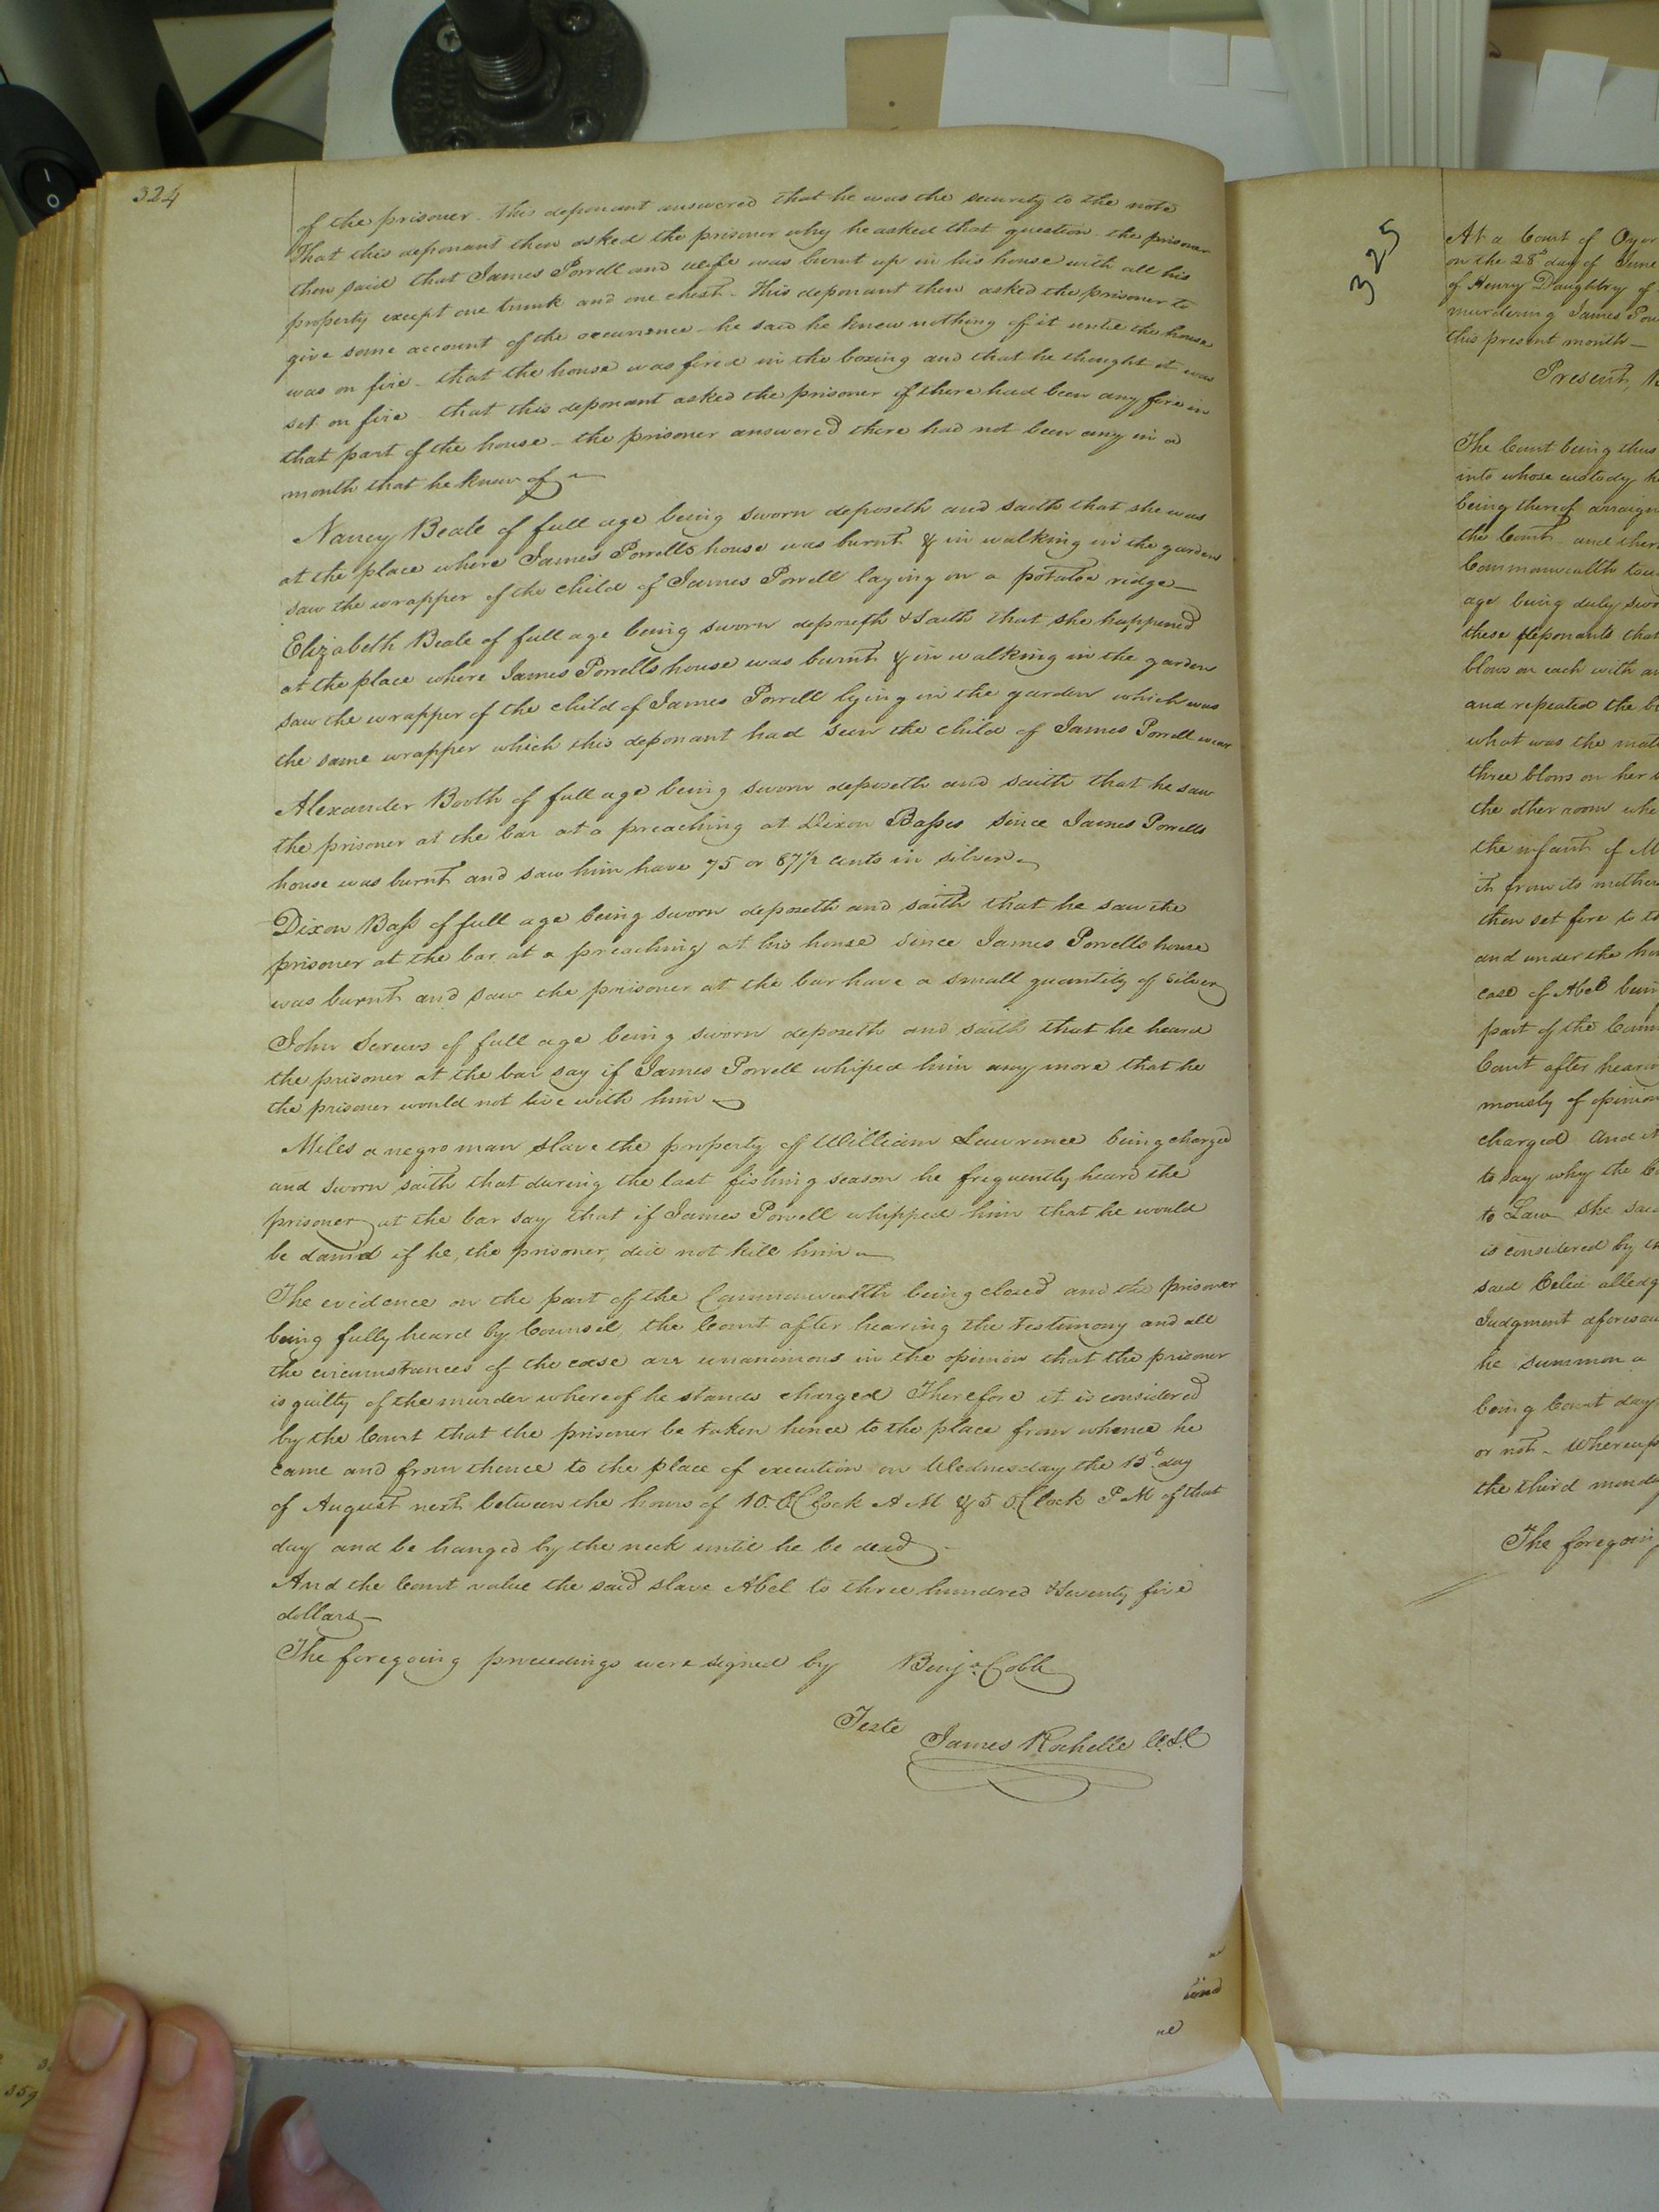 324
of the prisoner. this deponant answered that he was the security to the note
That this deponant then asked the prisoner why he asked that question. the prisoner
then said that James Porrell and wife was burnt up in his house with all his
property except one trunk and one chest - This deponant then asked the prisoner to
give some account of the occurrence - he said he knew nothing of it until the house
was on fire - that the house was fired in the boxing and that he thought it was
set on fire - that this deponant asked the prisoner if there had been any fire in
that part of the house - the prisoner answered there had not been any in a
month that he knew of -
Nancy Beale of full age being sworn deposeth and saith that she was
at the place where James Porrells house was burnt & in walking in the garden
saw the wrapper of the child of James Porrell laying on a potatoe ridge -
Elizabeth Beale of full age being sworn deposeth & saith that she happened
at the place where James Porrells house was burnt & in walking in the garden
saw the wrapper of the child of James Porrell lying in the garden which was
the same wrapper which this deponant had seen the child of James Porrell wear
Alexander Booth of full age being sworn deposeth and saith that he saw
the prisoner at the bar at a preaching at Dixon Basses since James Porrells
house was burnt and saw him have 75 or 87½ cents in silver -
Dixon Bass of full age being sworn deposeth and saith that he saw the
prisoner at the bar at a preaching at his house since James Porrells house
was burnt and saw the prisoner at the bar have a small quantity of silver
John Screws of full age being sworn deposeth and saith that he heard
the prisoner at the bar say if James Porrell whiped him any more that he
the prisoner would not live with him -
Miles a negro man slave the property of William Lawrence being charged
and sworn saith that during the last fishing season he frequently heard the
prisoner at the bar say that if James Porrell whipped him that he would
be damd if he, the prisoner, did not kill him -
The evidence on the part of the Commonwealth being closed and the prisoner
being fully heard by Counsel, the Court after hearing the testimony and all
the circumstances of the case are unanimous in the opinion that the prisoner
is guilty of the murder whereof he stands charged Therefore it is considered
by the Court that the prisoner be taken hence to the place from whence he
came and from thence to the place of execution on Wednesday the 15th day
of August next between the hours of 10. OClock A M & 5 OClock P M of that
day and be hanged by the neck until he be dead -
And the Court value the said slave Abel to three hundred & seventy five
dollars -
The foregoing proceedings were signed by Benja. Cobb
Teste James Rochelle C.S.C
325
At a Court of Oyer
on the 28th day of June
of Henry Daughtry of
murdering James Por
this present month -
Present,
The Court being thus
into whose custody
being thereof arraign
the Court and ther
Commonwealth
age being duly swor
these deponants that
blows on each with an
and repeated the bl
what was the matt
three blows on her
the other room whe
the infant of M
it from its mother
then set fire to
and under the ho
case of Abel
part of the Com
Court after hearin
mously of opinion
charged and it
to say why the
to Law she said
is considered by
said Celia alledg
Judgment aforesaid
he summon a
being Court day
or not - Whereup
the third monda
The foregoing